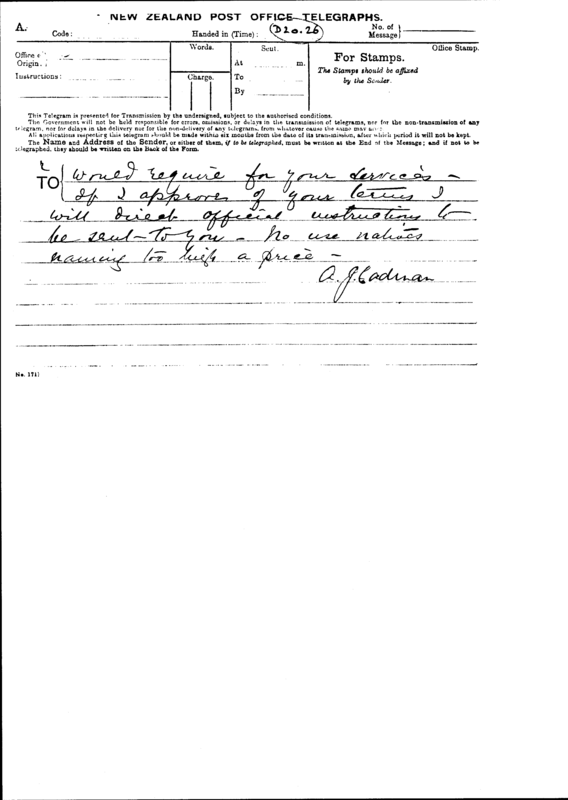 NEW ZEALAND POST OFFICE TELEGRAPHS.
A. Code: Handed in (Time): D20.26 No. of Message}
Office of Origin: Words. Sent. Office Stamp.
At m. For Stamps.
Instructions: Charge. To The Stamps should be affixed
By by the Sender.
This Telegram is presented for Transmission by the undersigned, subject to the authorised conditions.
The Government will not be held responsible for errors, omissions, or delays in the transmission of telegrams, nor for the non-transmission of any
telegram, nor for delays in the delivery nor for the non-delivery of any telegrams, from whatever cause the same may arise.
All applications respecting this telegram should be made within six months from the date of its transmission, after which period it will not be kept.
The Name and Address of the Sender, or either of them, if to be telegraphed, must be written at the End of the Message; and if not to be
telegraphed, they should be written on the Back of the Form.
2
TO would require for your services –
If I approve of your terms I
will direct official instructions to
be sent to you – No use natives
naming too high a price –
A. J. Cadman
No. 1711